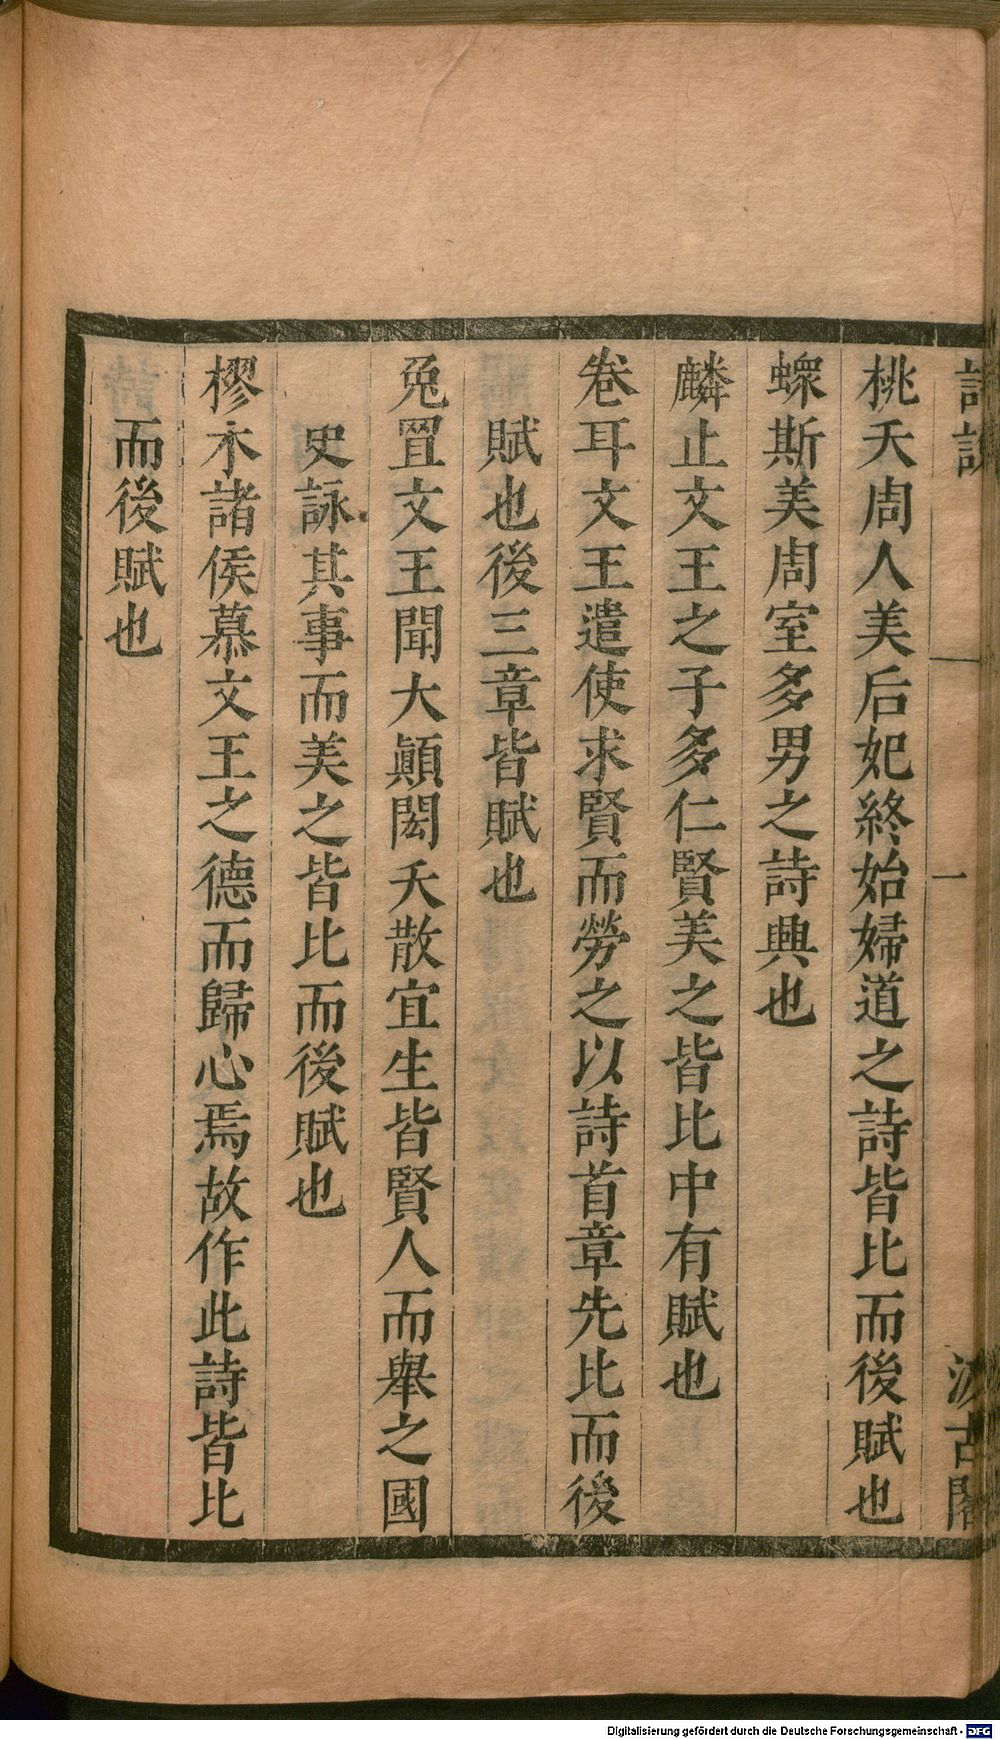 詩說
一
汲古閣
桃夭周人美后妃終始婦道之詩皆比而後賦也
螽斯美周室多男之詩興也
麟止文王之子多仁賢美之皆比中有賦也
卷耳文王遣使求賢而勞之以詩首章先比而後
賦也後三章皆賦也
兔罝文王聞大顚閎夭散宜生皆賢人而舉之國
史詠其事而美之皆比而後賦也
樛木諸侯慕文王之德而歸心焉故作此詩皆比
而後賦也
Digitalisierung gefördert durch die Deutsche Forschungsgemeinschaft - DFG